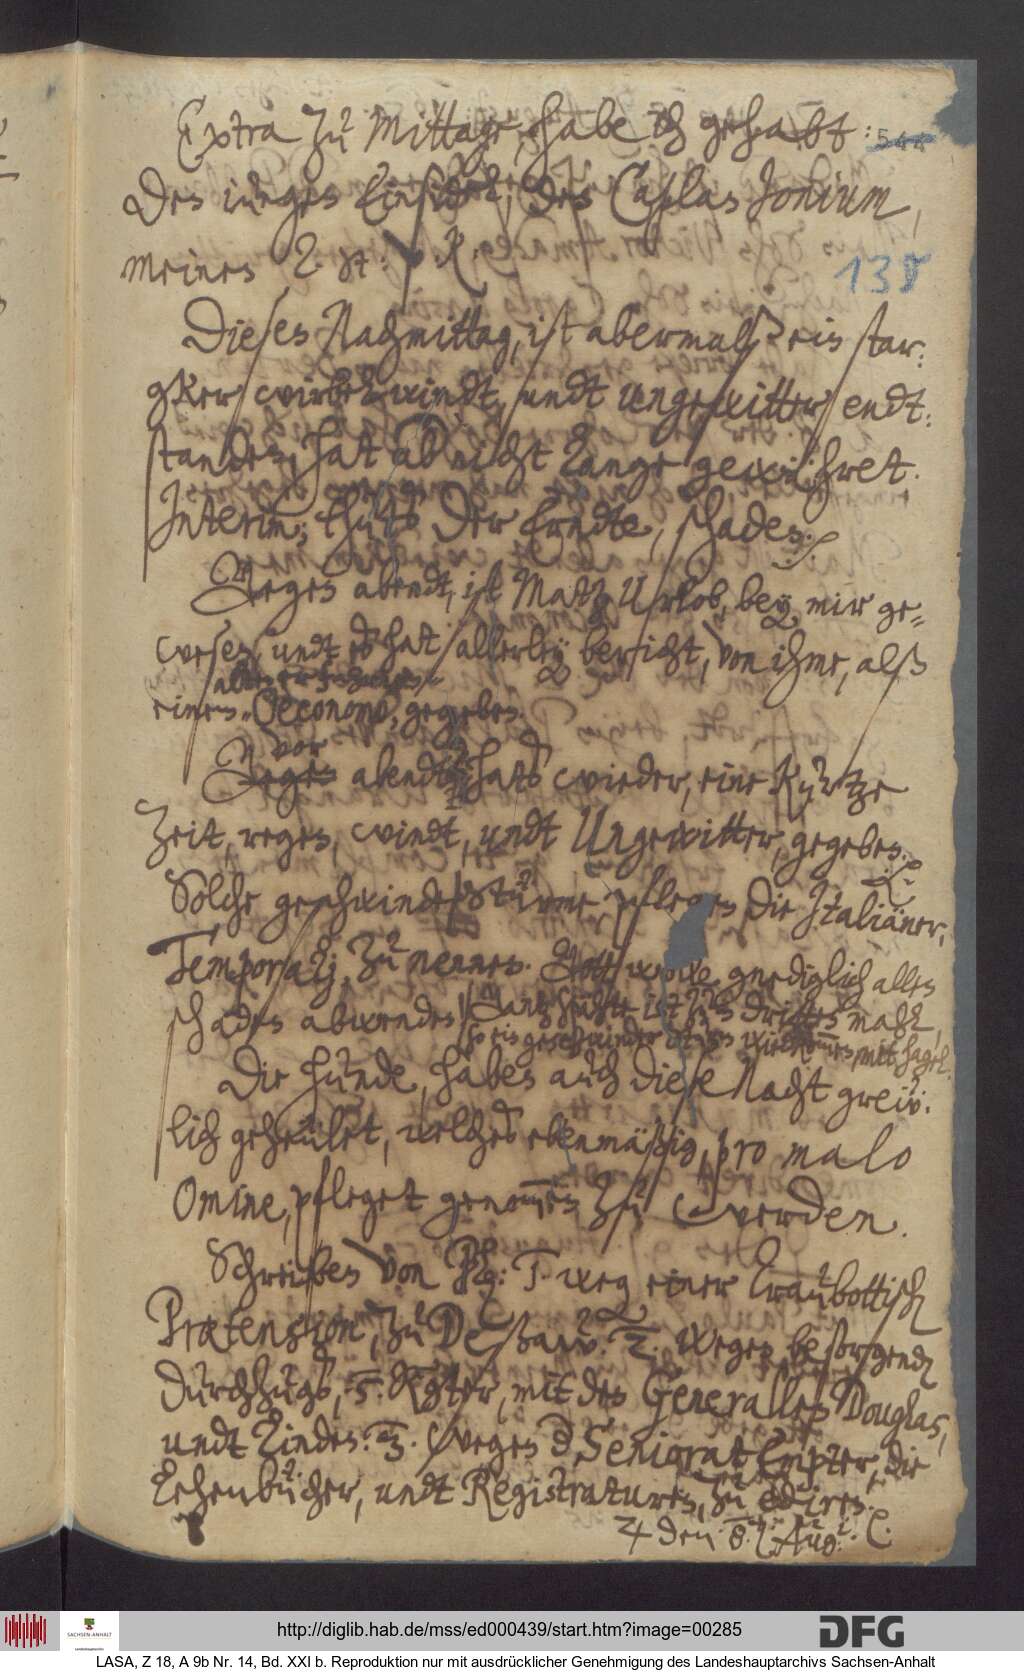 Extra zu Mittage, habe ich gehabt:
544
den iungen Einsidel, den Caplan Jonium,
138
meinen
Diesen Nachmittag, ist abermalß ein star-
gker wirbelwindt, undt ungewitter endt-
standen, hat ab nicht lange gewähret.
Interim; thuts der Erndte, schaden.
Gegen abendt, ist Matz Urlob, bey mir ge-
wesen, undt es hat allerley bericht, von ihme, alß
einen Oeconomo, gegeben.
vor
Gegen abendts hats wieder, eine kurtze
Zeit, regen, windt, undt Ungewitter, gegeben.
Solche geschwinde Stürme, pflegen die Italiäner,
Temporalj zu nennen. Gott wolle gnediglich allen
schaden abwenden! Gantz spähte ist zum dritten mahl,
so ein geschwinder mit hagel.
Die hunde, haben auch diese Nacht greü-
lich geheület, welches ebenmäßig, pro malo
Omine, pfleget genommen zu werden.
Schreiben von einer
Prætension, zu Deßaw. 2. wegen besorgend
durchzugs, 3. mit den Generallen Douglas,
undt Linden. wegen Seniorat Empter, die
Lehenbücher, undt Registraturen, zu ediren.
♃ den: 8. Aug:
http://diglib.hab.de/mss/ed000439/start.htm?image=00285
SACHSEN-ANHALT
DFG
LASA, Z 18, A 9b Nr. 14, Bd. XXI b. Reproduktion nur mit ausdrücklicher Genehmigung des Landeshauptarchivs Sachsen-Anhalt